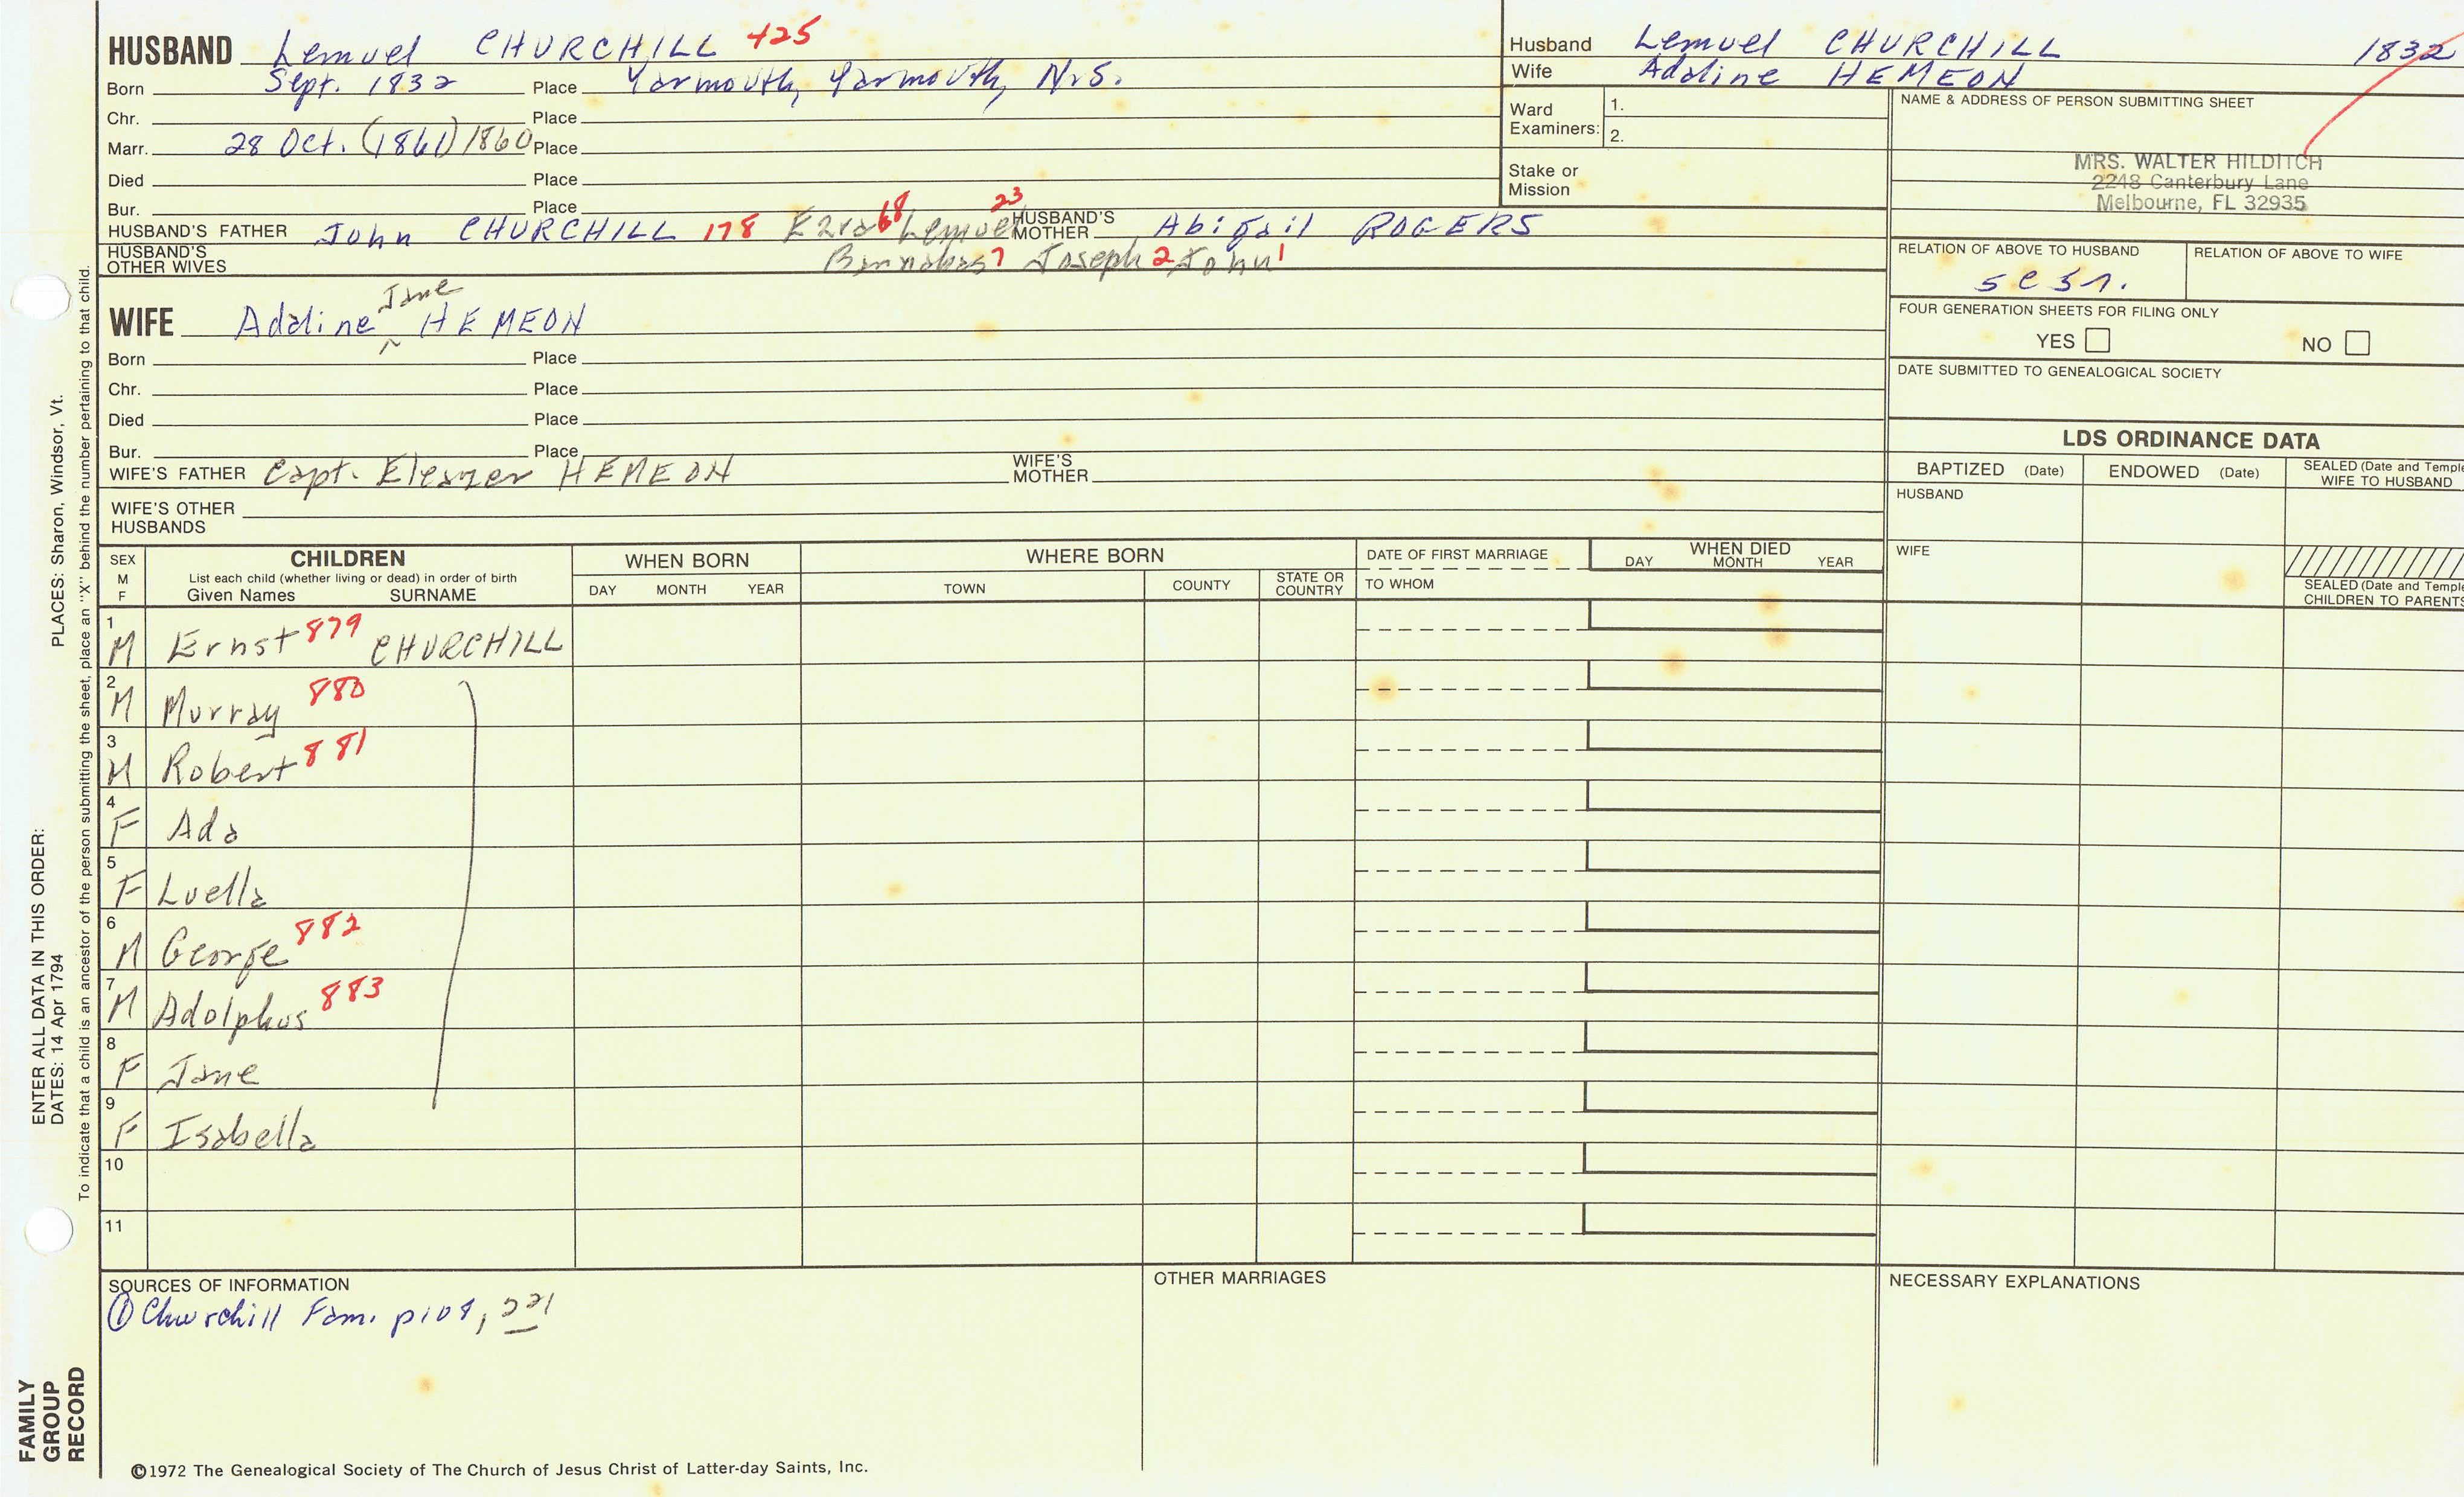 HUSBAND Lemuel CHURCHILL 425
Born Sept. 1832 Place Yarmouth, Yarmouth, N.S.
Chr. Place
Marr. 28 Oct. (1861) 1860 Place
Died Place
Bur. Place
HUSBAND'S FATHER John CHURCHILL 178 Ezra 68 Lemuel 23 HUSBAND'S MOTHER Abigail ROGERS
HUSBAND'S OTHER WIVES Barnabas 7 Joseph 2 John 1
Husband Lemuel CHURCHILL 1832
Wife Adaline HEMEON
Ward Examiners: 1.
2.
Stake or Mission
NAME & ADDRESS OF PERSON SUBMITTING SHEET
MRS. WALTER HILDITCH
2248 Canterbury Lane
Melbourne, FL 32935
RELATION OF ABOVE TO HUSBAND RELATION OF ABOVE TO WIFE
FOUR GENERATION SHEETS FOR FILING ONLY
YES NO
DATE SUBMITTED TO GENEALOGICAL SOCIETY
Jane
WIFE Adaline ^ HEMEON
Born Place
Chr. Place
Died Place
Bur. Place
WIFE'S FATHER Capt. Eleazer HEMEON WIFE'S MOTHER
WIFE'S OTHER HUSBANDS
LDS ORDINANCE DATA
BAPTIZED (Date) ENDOWED (Date) SEALED (Date and Temple
WIFE TO HUSBAND
HUSBAND
WIFE
SEALED (Date and Temple
CHILDREN TO PARENTS
SEX M F CHILDREN WHEN BORN WHERE BORN DATE OF FIRST MARRIAGE WHEN DIED
List each child (whether living or dead) in order of birth
Given Names SURNAME DAY MONTH YEAR TOWN COUNTY STATE OR COUNTRY TO WHOM DAY MONTH YEAR
1 M Ernst 879 CHURCHILL
2 M Murray 880
3 M Robert 881
4 F Ada
5 F Luella
6 M George 882
7 M Adolphus 883
8 F Jane
9 F Isabella
10
11
SOURCES OF INFORMATION
① Churchill Fam. p108, 221
OTHER MARRIAGES
NECESSARY EXPLANATIONS
©1972 The Genealogical Society of The Church of Jesus Christ of Latter-day Saints, Inc.
PLACES: Sharon, Windsor, Vt.
ENTER ALL DATA IN THIS ORDER:
DATES: 14 Apr 1794
To indicate that a child is an ancestor of the person submitting the sheet, place an "X" behind the number pertaining to that child.
FAMILY
GROUP
RECORD